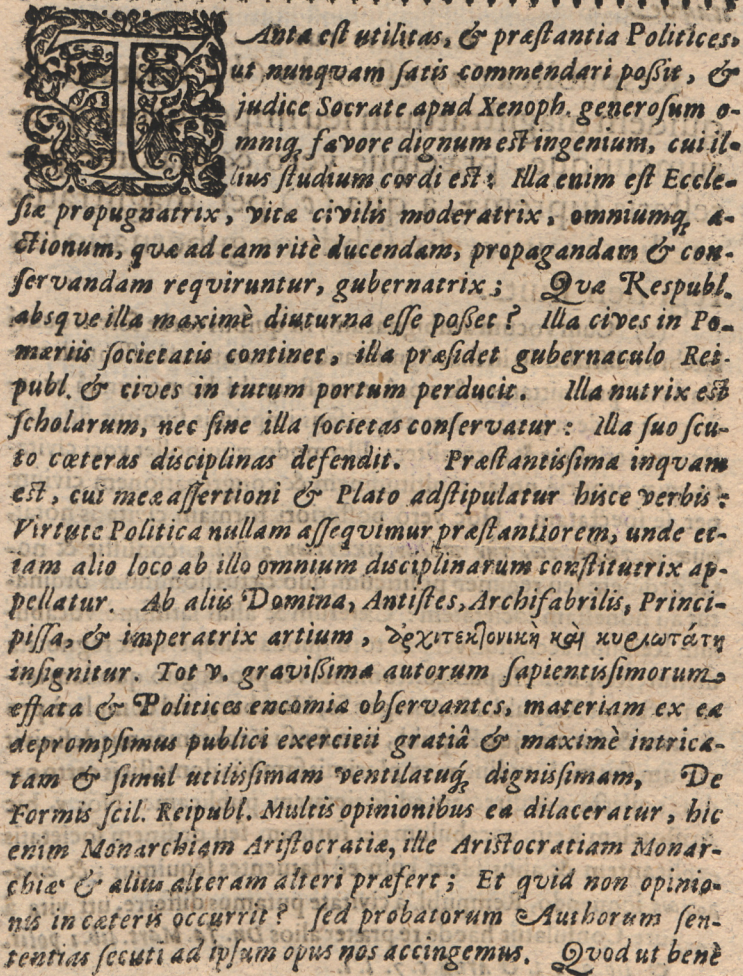 TAnta est utilitas, & præstantia Politices,
ut nunqvam satis commendari poßit, &
judice Socrate apud Xenoph. generosum o-
mniq; favore dignum est ingenium, cui il-
lius studium cordi est: Illa enim est Eccle-
siæ propugnatrix, vitæ civilis moderatrix, omniumq; a-
ctionum, qvæ ad eam ritè ducendam, propagandam & con-
servandam reqviruntur, gubernatrix; Qva Respubl.
absqve illa maximè diuturna esse poßet? Illa cives in Po-
mæriis societatis continet, illa præsidet gubernaculo Rei-
publ. & cives in tutum portum perducit. Illa nutrix est
scholarum, nec sine illa societas conservatur: Illa suo scu-
to cæteras disciplinas defendit. Præstantissima inqvam
est, cui meæ assertioni & Plato adstipulatur hisce verbis:
Virtute Politica nullam assequimur præstantiorem, unde et-
iam alio loco ab illo omnium disciplinarum constitutrix ap-
pellatur. Ab aliis Domina, Antistes, Archifabrilis, Princi-
pissa, & imperatrix artium, ἀρχιτεκτονικὴ καὶ κυριωτάτη
insignitur. Tot v. gravißima autorum sapientissimorum
effata & Politices encomia observantes, materiam ex ea
deprompsimus publici exercitii gratiâ & maximè intrica-
tam & simul utilissimam ventilatuq́; dignissimam, De
Formis scil. Reipubl. Multis opinionibus ea dilaceratur, hic
enim Monarchiam Aristocratiæ, ille Aristocratiam Monar-
chiæ & alius alteram alteri præfert; Et quid non opinio-
nis in cæteris occurrit? sed probatorum Authorum sen-
tentias secuti ad ipsum opus nos accingemus. Qvod ut benè